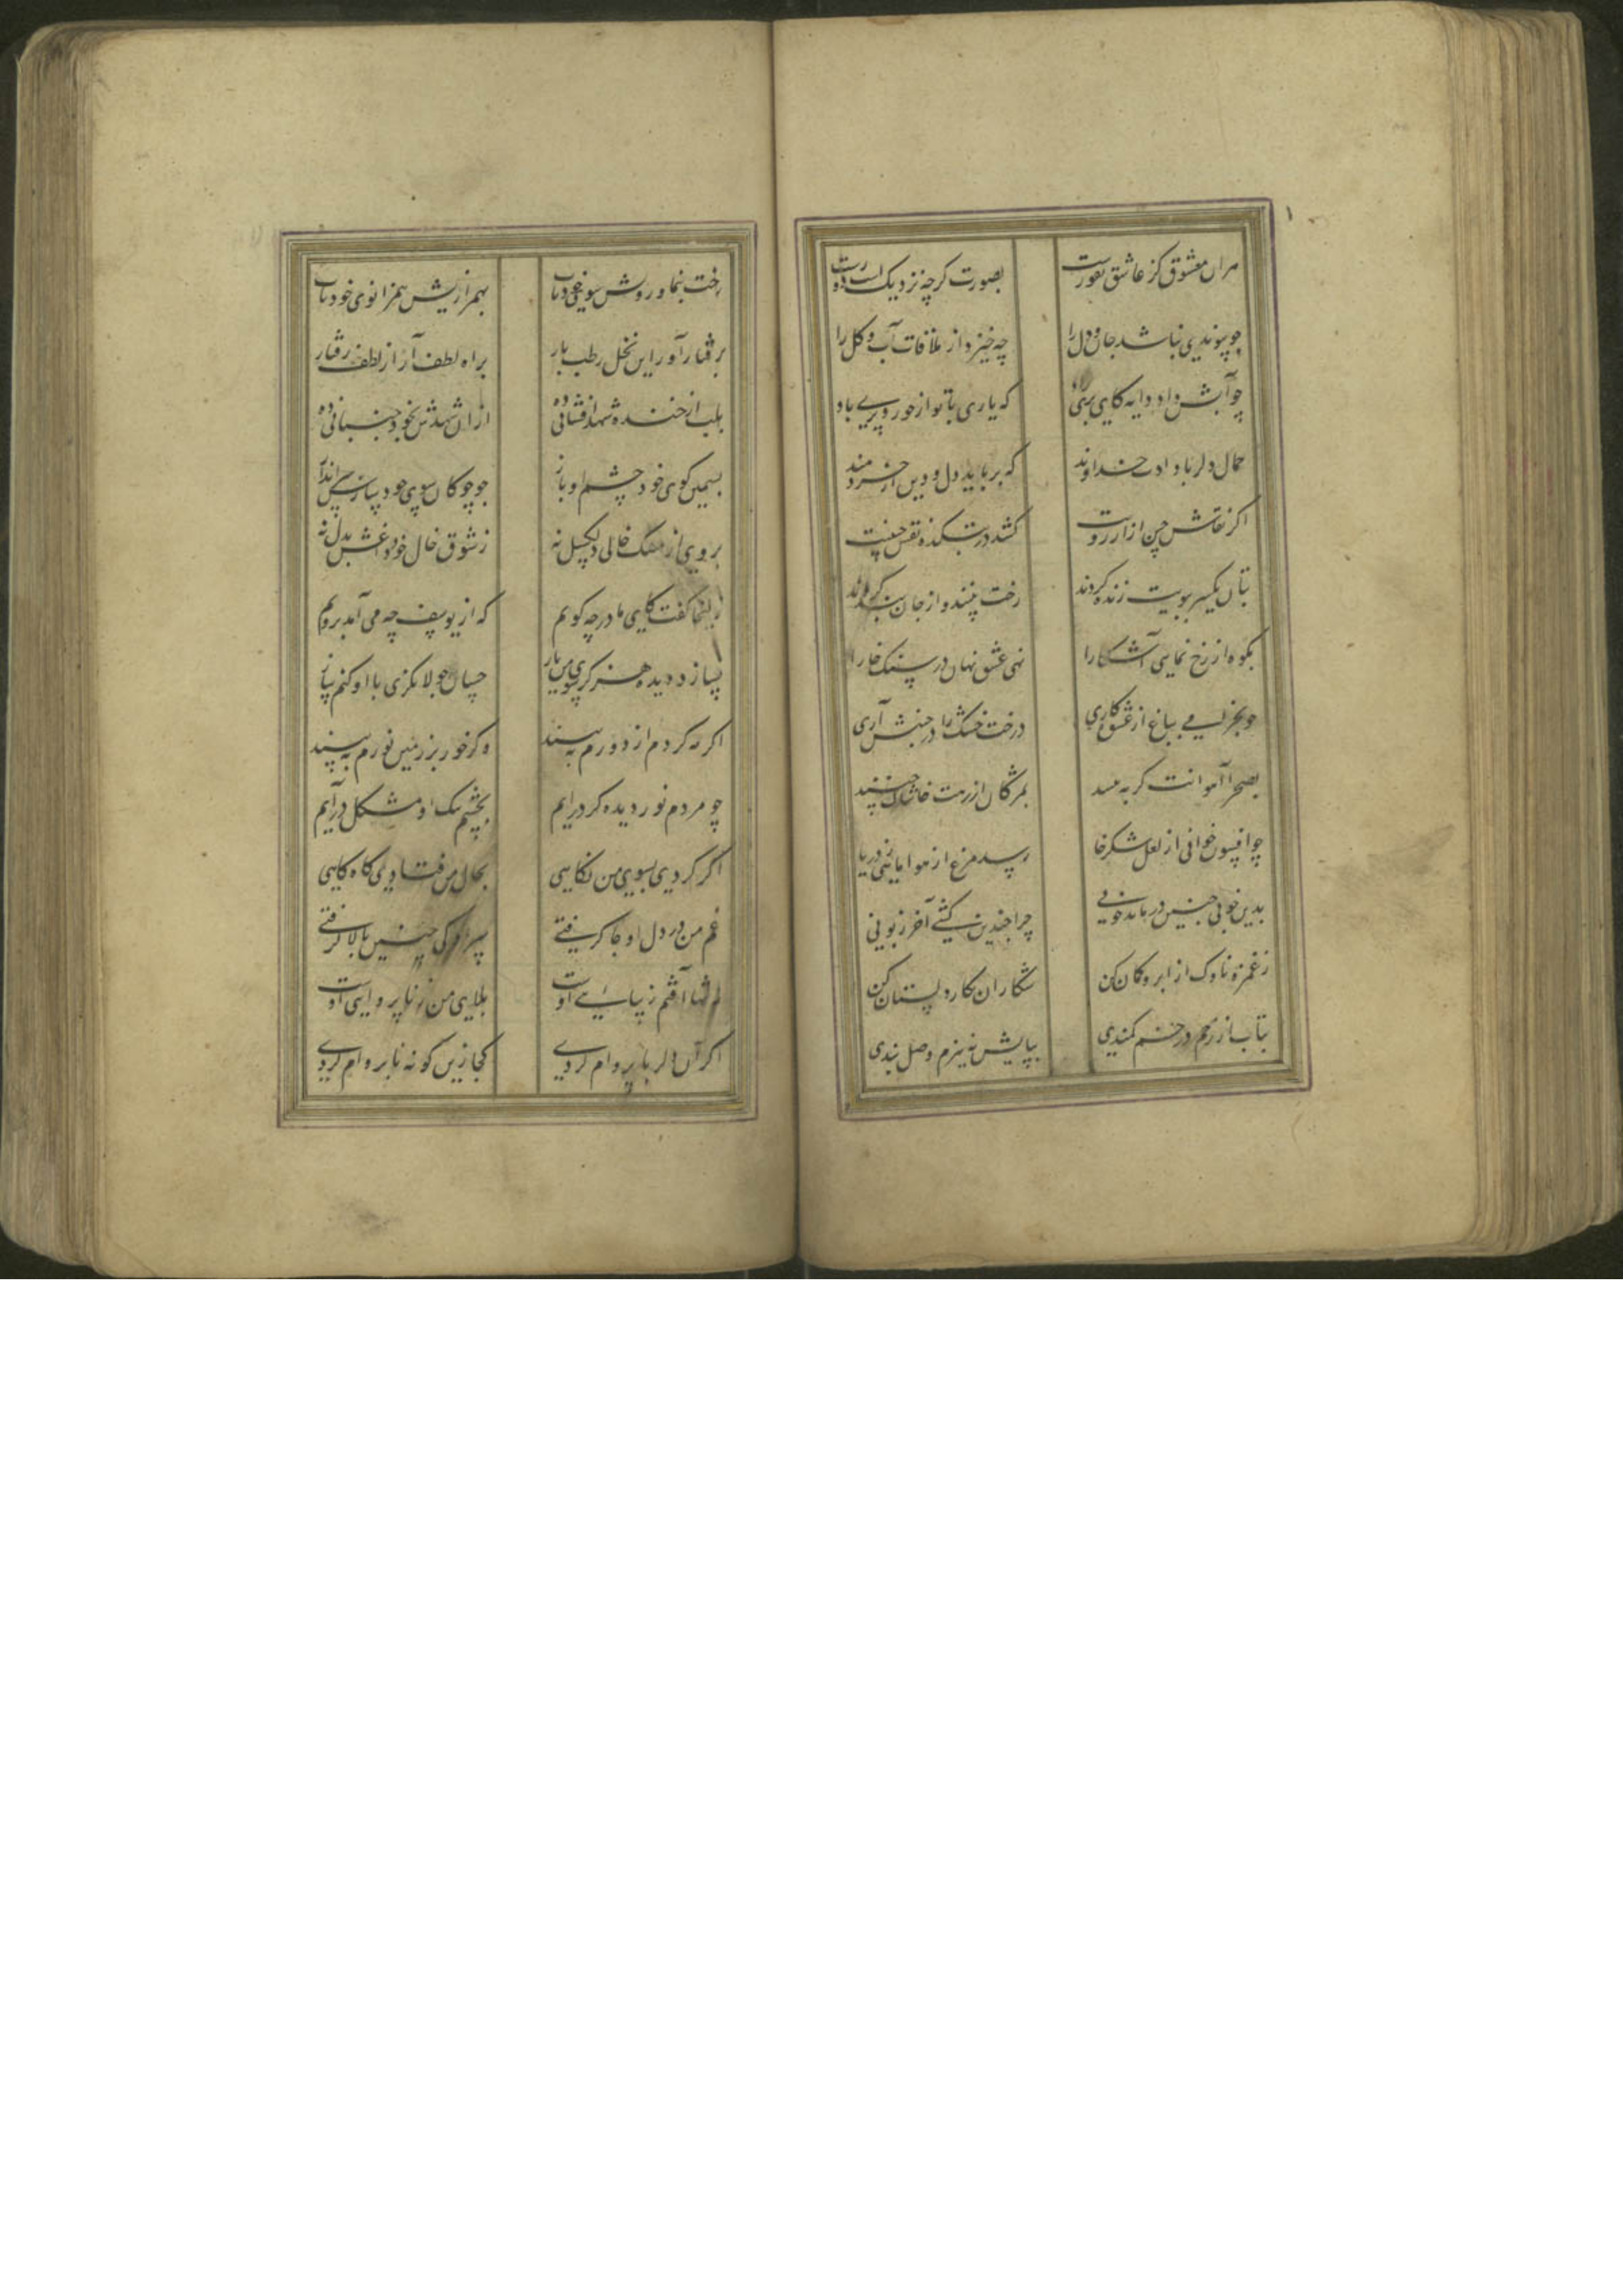 هران معشوق کز عاشق نفورست بصورت کرچه نزدیک است دورست
چو پیوندی نباشد جان و دل را چه خیزد از ملاقات آب و کل را
چو آبش داد دایه کای پری زاد که یاری با تو از حور و پری باد
جمال دلربا دادت خداوند که برباید دل و دین از خردمند
اکر نقاش چین از آرزویت کشد در بتکده نقش
بتان یکسر بیویت زنده کردند رخت بینند و از جان بنده کردند
بکوه ار رخ نمایی آشکارا نهی عشق نهان در سنک خارا
چو بخرامی بباغ از عشوه کاری درخت خشک را در جنبش آری
بصحرا آهوانت کر به بینند بمژکان از رهت خاشاک چینند
چو افسون خوانی از لعل شکرخا رسد مرغ از هوا ماهی ز دریا
بدین خوبی چنین درمانده چونی چرا چندین کشی آخر زبونی
ز غمزه ناوک از ابرو کمان کن شکار آن نکار دلستان کن
بتاب از زلف خم در خم کمندی بپایش نه بزم وصل بندی
رخت بنما و رویش سوی خود تاب بهمرازیش همزانوی خود یاب
برفتار آور این نخل رطب بار براه لطفش آر از لطف رفتار
بلب از خنده شهد افشانی ده از آن شهدش بخود جنبشانی ده
بسیمین کوی خود چشم او باز چو چوکان سوی خود سرش انداز
بروی از مشک خالی دلکسل نه ز شوق خال خود داغش بدل نه
زلیخا کفت کای مادر چه کویم که از یوسف چه می آید برویم
نسازد دیده هرکز سوی من باز چسان جولانکری با او کنم ساز
اکر مه کردم از دورم نه بیند وکر خور بر زمین نورم نه بیند
چو مردم نور دیده کر درآیم بچشم تنک او مشکل درآیم
اکر کردی بسوی من نکاهی بحال من فتادی کاه کاهی
غم من در دل او جا کرفتی سر کی چنین بالا کرفتی
نه تنها آفتم زیبایی اوست بلای من ز ناپروایی اوست
اکر آن دلربا پروام کردی کجا زین کونه ناپروام کردی